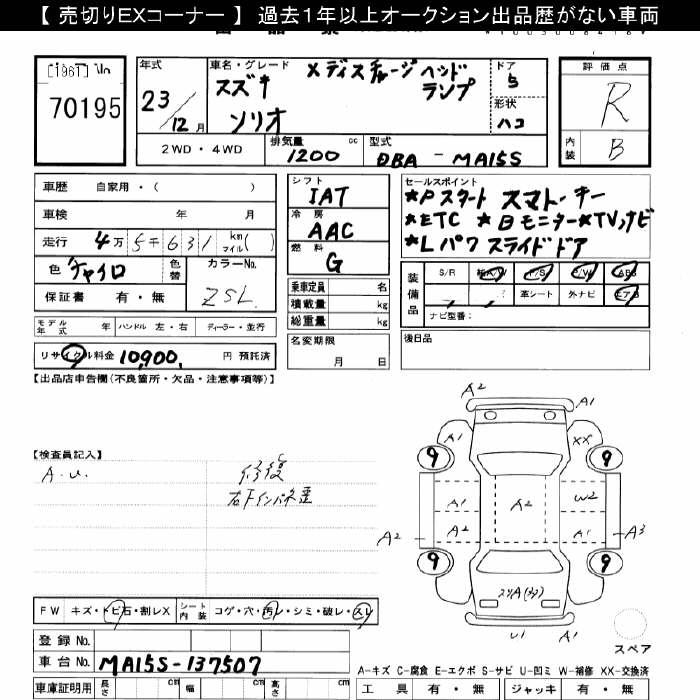 【 売切りEXコーナー 】 過去1年以上オークション出品歴がない車両
[1961] No
70195
年式
23/12月
車名・グレード
スズキ
ソリオ
X ディスチャージ ヘッド
ランプ
ドア
5
形状
ハコ
評価点
R
内装
B
2WD ・ 4WD
排気量
1200 cc
型式
DBA - MA15S
車歴 自家用・( )
車検 年 月
走行 4万5千631 km マイル( )
色 チャイロ 色替
カラーNo.
ZSL
保証書 有・無
モデル年式 年 ハンドル 左・右 ディーラー・並行
リサイクル料金 10,900. 円 預託済
シフト
IAT
冷房
AAC
燃料
G
乗車定員 名
積載量 kg
総重量 kg
名変期限
月 日
セールスポイント
★Pスタート スマートキー
★ETC ★Bモニター★TVナビ
★Lパワスライドドア
装備品
S/R P/S P/W ABS
革シート 外ナビ エアB
ナビ型番:
後日品
【出品店申告欄(不良箇所・欠品・注意事項等)】
【検査員記入】
A.U.
修復
右Fインパネ歪
A2
A1
A1
XX
9
9
A1
A2
W2
A2
A2
A1
A3
9
9
U1
A1
スペア
FW キズ・トビ石・割レX シート内装 コゲ・穴・汚レ・シミ・破レ・スレ
登録 No.
車台 No. MA15S-137507
車庫証明用 長さ cm 幅 cm 高さ cm
A-キズ C-腐食 E-エクボ S-サビ U-凹ミ W-補修 XX-交換済
工具 有・無 ジャッキ 有・無